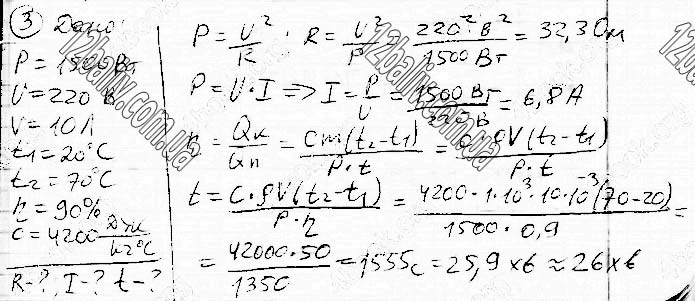 ③ Дано:
P = 1500 Вт
U = 220 В
V = 10 л
t₁ = 20°C
t₂ = 70°C
η = 90%
c = 4200 Дж/кг°C
R-? I-? t-?
P = U²/R ; R = U²/P = 220² В²/1500 Вт = 32,3 Ом
P = U·I => I = P/U = 1500 Вт/220 В = 6,8 А
η = Qк/Qп = cm(t₂-t₁)/P·t = cρV(t₂-t₁)/P·t
t = c·ρV(t₂-t₁)/P·η = 4200·1·10³·10·10⁻³(70-20)/1500·0,9 =
= 42000·50/1350 = 1555 с = 25,9 хв ≈ 26 хв
12baliv.com.ua